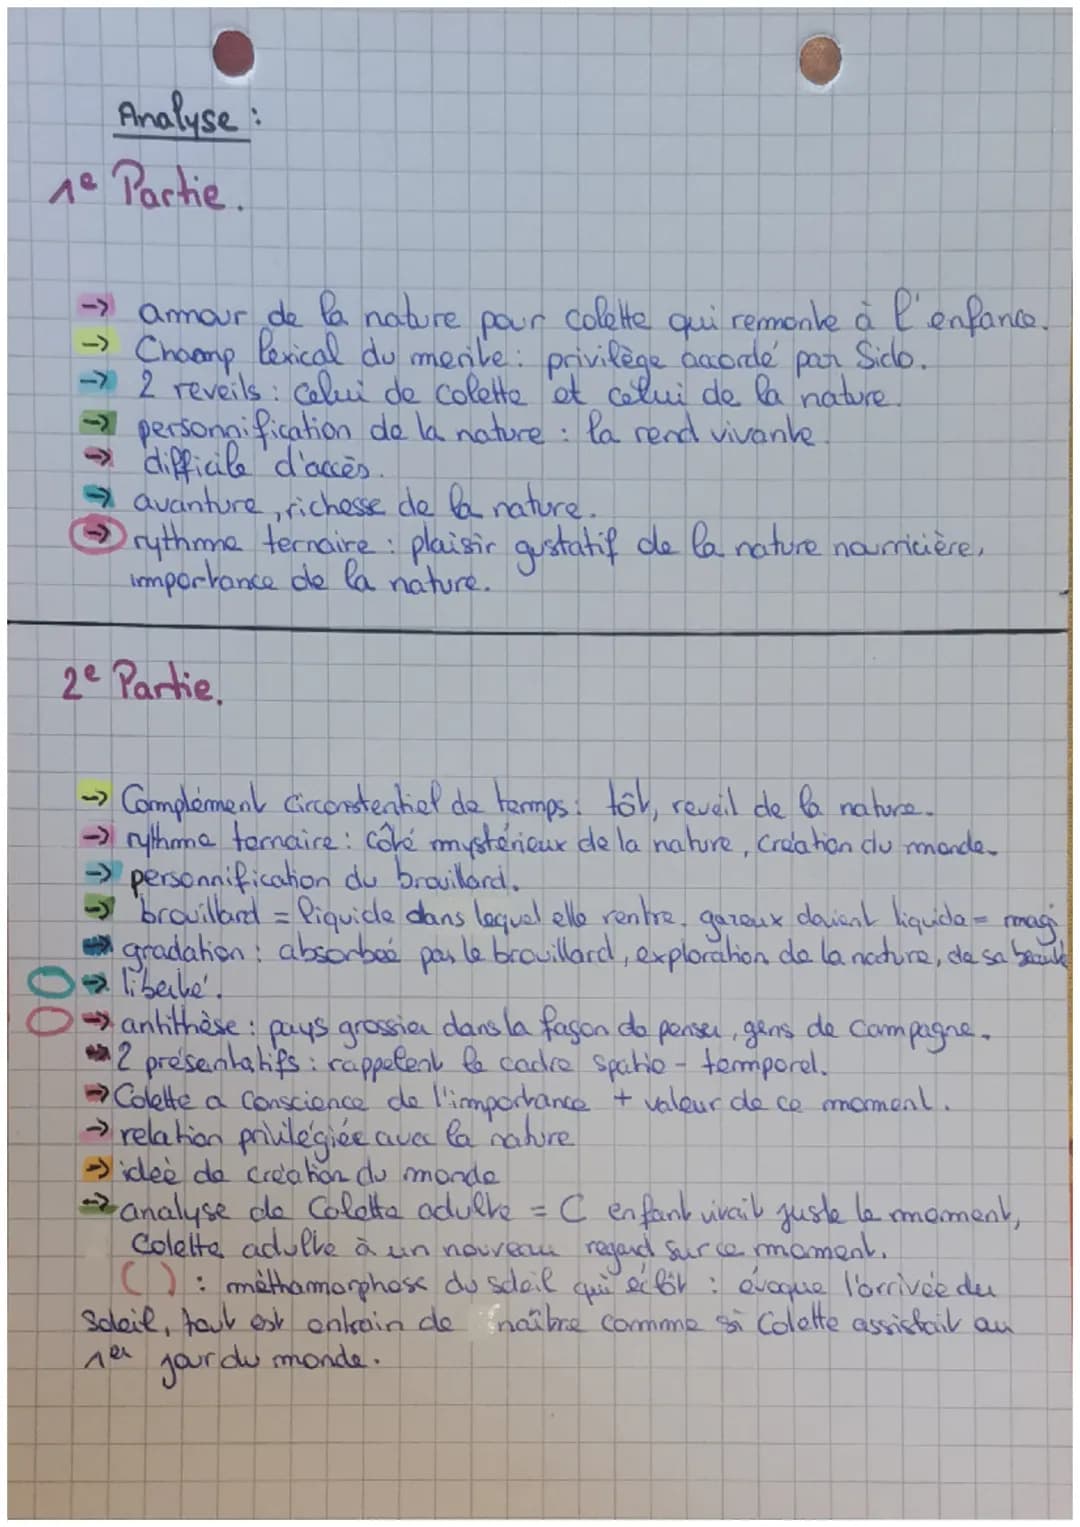 Analyse :
1e Partie.
-> amour de la nature pour Colette qui remonte à l'enfance.
-> Chaamp lexical du merite : privilège accordé par Sido.
-> 2 reveils : celui de Colette et celui de la nature.
-> personnification de la nature : la rend vivante.
-> difficile d'accès.
-> avanture, richesse de la nature.
-> rythme ternaire : plaisir gustatif de la nature nourricière,
importance de la nature.
2e Partie.
-> Complément circonstentiel de temps : tôt, reveil de la nature.
-> rythme ternaire : côté mystérieux de la nature, création du monde.
-> personnification du brouillard.
-> brouillard = liquide dans lequel elle rentre, gazeux devient liquide = magi
-> gradation : absorbée par le brouillard, exploration de la nature, de sa beauté
-> liberté.
-> antithèse : pays grossier dans la façon de penser, gens de campagne.
-> 2 présentatifs : rappelent le cadre spatio - temporel.
-> Colette a conscience de l'importance + valeur de ce moment.
-> relation privilégiée avec la nature
-> ideé de création du monde
-> analyse de Colette adulte = C enfant vivait juste le moment,
Colette adulte à un nouveau regard sur ce moment.
( ) : méthamorphose du soleil qui éclôt : évoque l'arrivée du
Soleil, tout est entrain de naître comme si Colette assistait au
1er jour du monde.